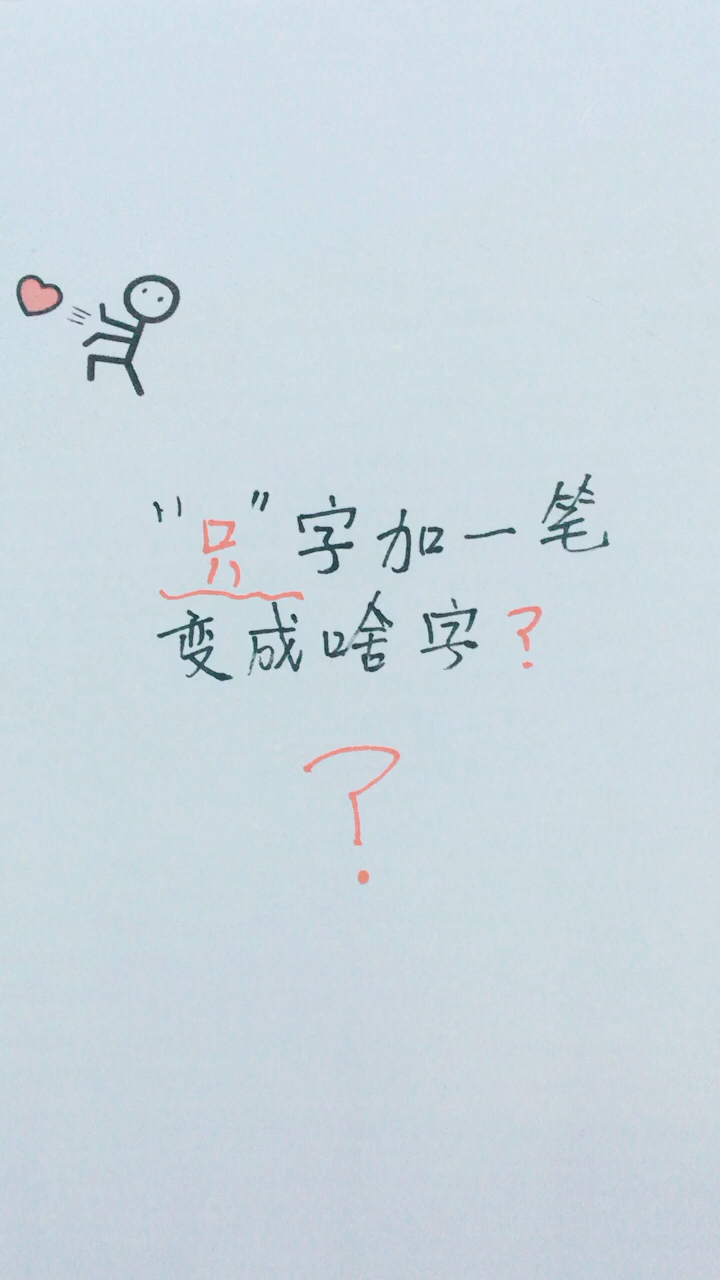 “只”字加一笔
变成啥字?
?